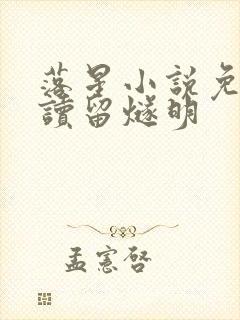 落星小說免
讀留燧明
孟憲啓